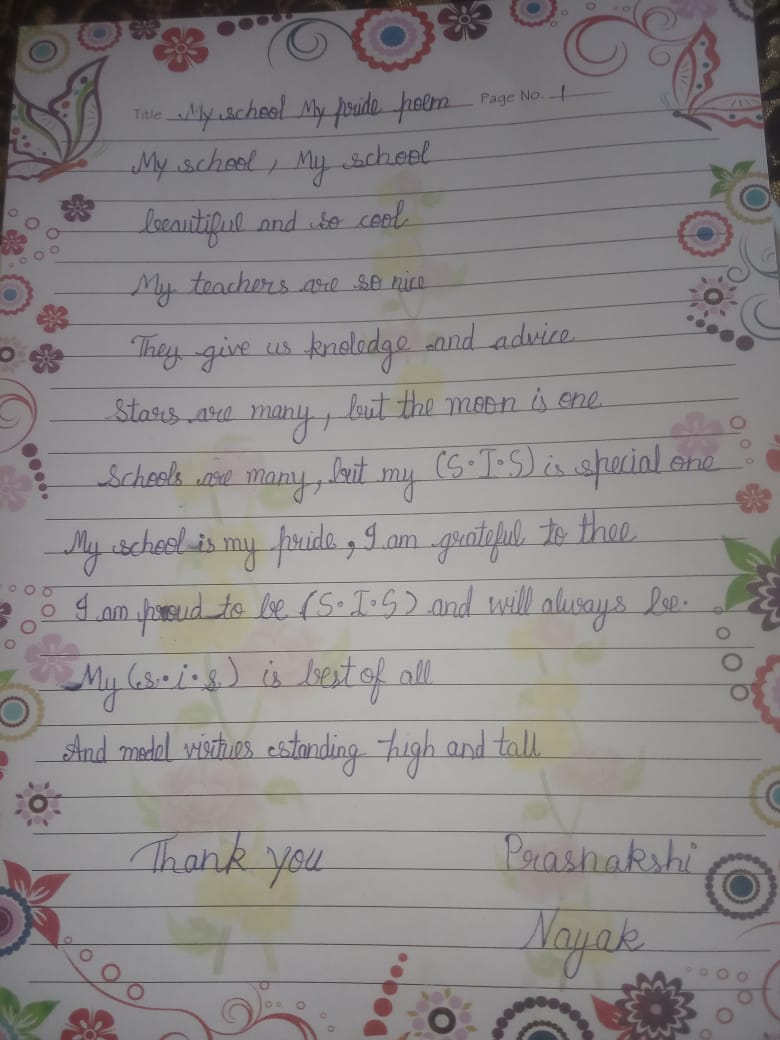 Title My school My pride poem Page No. 1
My school, My school
beautiful and so cool
My teachers are so nice
They give us knoledge and advice
Stars are many, but the moon is one
Schools are many, but my (S.I.S) is special one
My school is my pride, I am grateful to thee
I am proud to be (S.I.S) and will always be.
My (s.i.s) is best of all
And model virtues estanding high and tall
Thank you Prashakshi
Nayak